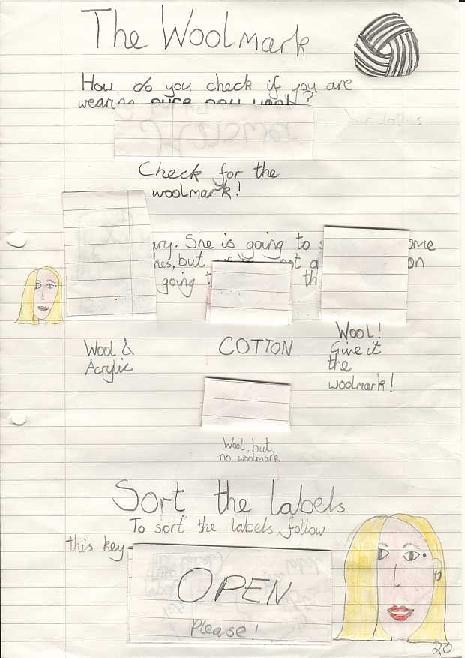 The Woolmark
How do you check if you are
wearing pure new
Check for the
woolmark!
She is going to
but
going
Wool &
Acrylic
COTTON
Wool!
Give it
the
woolmark!
Wool, but
no woolmark
Sort the labels
To sort the labels, follow
this key-
OPEN
Please!
20